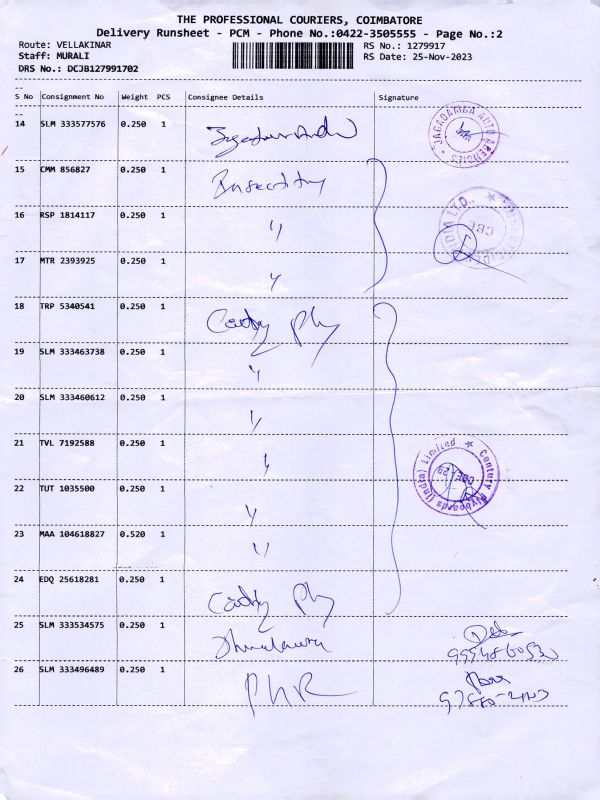 THE PROFESSIONAL COURIERS, COIMBATORE
Delivery Runsheet - PCM - Phone No.:0422-3505555 - Page No.:2
Route: VELLAKINAR RS No.: 1279917
Staff: MURALI RS Date: 25-Nov-2023
DRS No.: DCJB127991702
--
S No Consignment No Weight PCS Consignee Details Signature
--
14 SLM 333577576 0.250 1
JAGADAMBA AUTO AGENCIES
15 CMM 856827 0.250 1
16 RSP 1814117 0.250 1 〃
CBE
17 MTR 2393925 0.250 1 〃
18 TRP 5340541 0.250 1 Ply
19 SLM 333463738 0.250 1 〃
20 SLM 333460612 0.250 1 〃
21 TVL 7192588 0.250 1 〃
Century Plyboards (India) Limited
22 TUT 1035500 0.250 1 〃
23 MAA 104618827 0.520 1 〃
24 EDQ 25618281 0.250 1 Ply
25 SLM 333534575 0.250 1
26 SLM 333496489 0.250 1 PHR